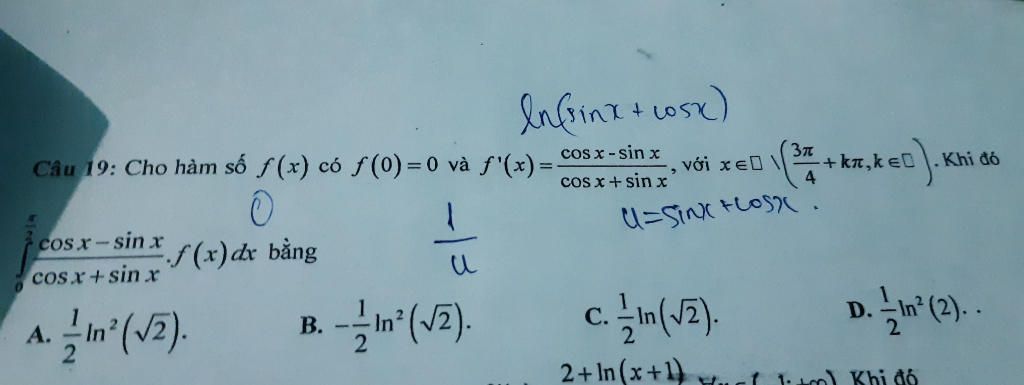 ln(sinx + cosx)
Câu 19: Cho hàm số f(x) có f(0)=0 và f'(x)= (cos x - sin x)/(cos x + sin x), với x∈□ \ (3π/4 + kπ, k∈□). Khi đó
u=sinx+cosx.
∫_0^{π/2} (cos x − sin x)/(cos x + sin x) . f(x)dx bằng
1/u
A. 1/2 ln²(√2). B. −1/2 ln²(√2). C. 1/2 ln(√2). D. 1/2 ln²(2). .
2+ln(x+1) Khi đó